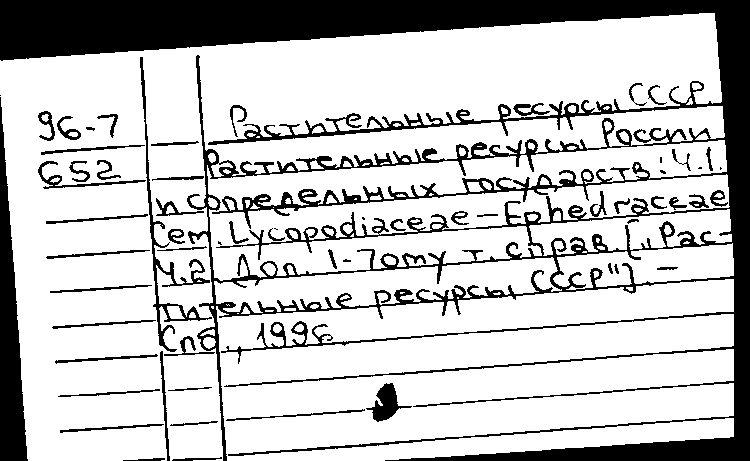 96-7
652
Растительные ресурсы СССР.
Растительные ресурсы России
и сопредельных государств: Ч.1.
Сем. Lycopodiaceae - Ephedraceae
Ч.2. Доп. 1-7ому т. справ. [„Рас-
тительные ресурсы СССР"]. -
Спб., 1996.